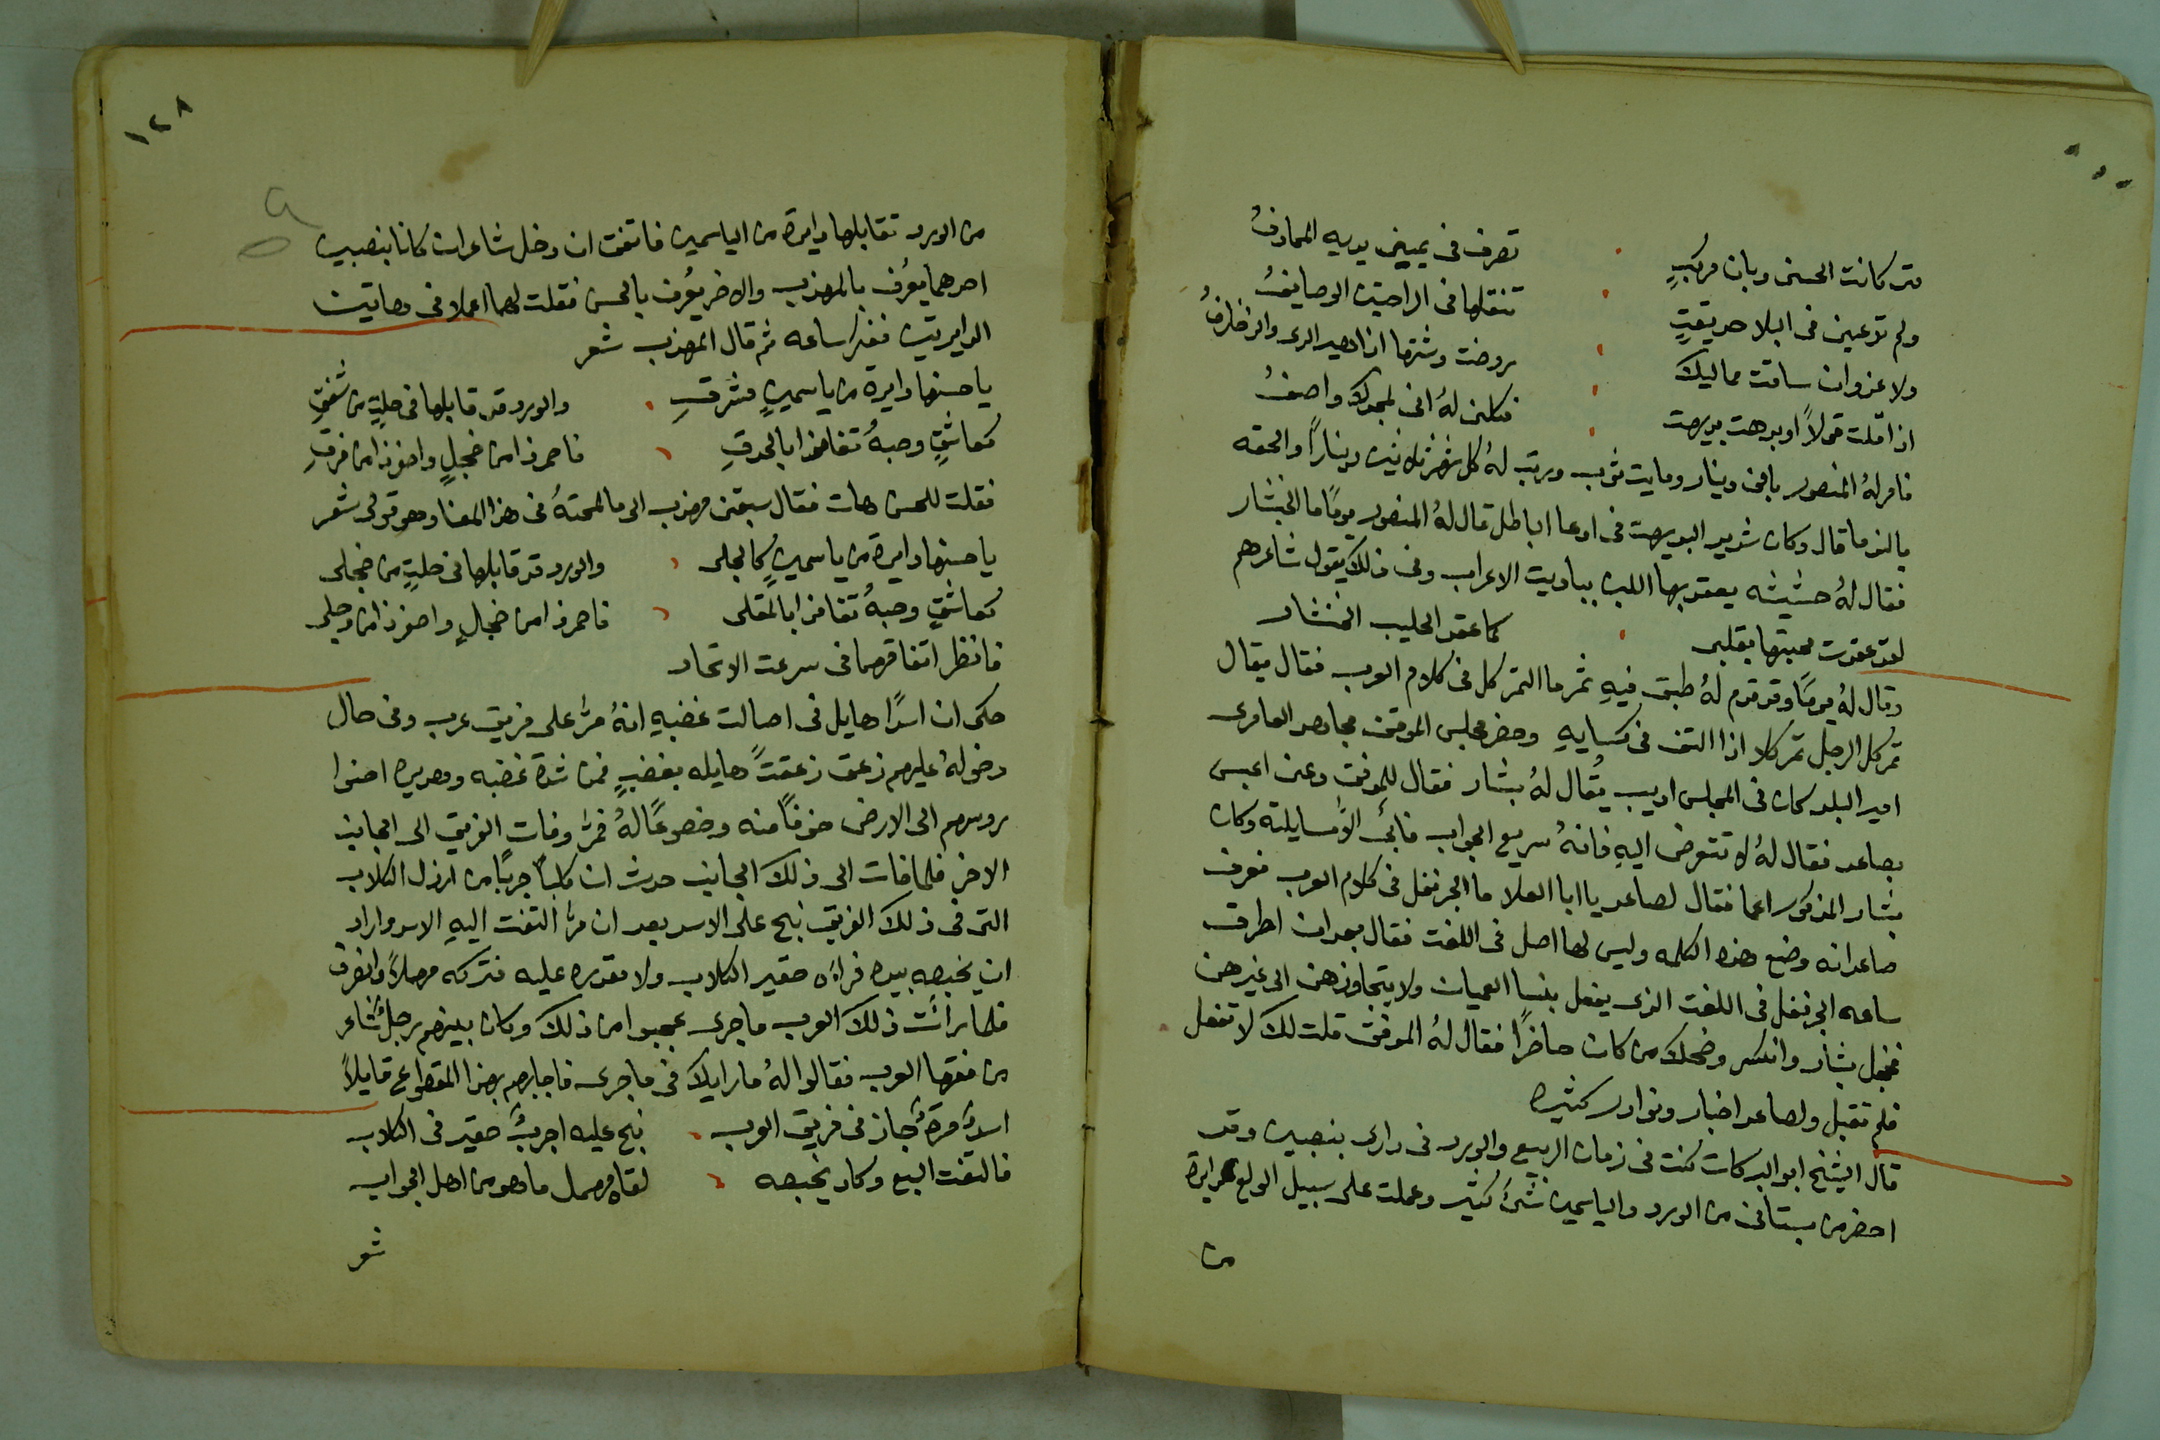 متى كانت الحسنى وبان مركبٍ تصرف فى يمينى يديه المجادفُ
ولم تر عين فى البلا حديقتٍ تنقلها فى الراحتين الوصايفُ
ولا غروان ساقت مماليك بروضت وشتها ازاهير الربى والزخارفُ
اذا قلت قولاً او بدهت بديهت فكلنى لهُ انى لمجدك واصفُ
فامر لهُ المنصور بالف دينار ومايت ثوب ورتب لهُ كل شهر ثلاثين ديناراً والحقه
بالندما قال وكان شديد البديهت فى ادعا اباطل قال لهُ المنصور يومًا ما الخنشار
فقال لهُ حشيشه يعقد بها اللبن بباديت الاعراب وفى ذلك يقول شاعرهم
لقد عقدت محبتها بقلبى كما عقد الحليب الخنشار
وقال لهُ يومًا وقد قدم لهُ طبق فيهِ تمر ما التمركل فى كلام العرب فقال يقال
تمركل الرجل تمركلا اذا التف فى كسايهِ وحضر مجلس الموفق مجاهد العامرى
امير البلد كان فى المجلس اديب يُقال لهُ بشار فقال للموفق دعنى اعبس
بصاعد فقال لهُ لا تتعرض اليهِ فانهُ سريع الجواب فابى الا مسايلته وكان
بشار المذكور اعما فقال لصاعد يا ابا العلا ما الجرنفل فى كلام العرب فعرف
صاعد انه وضع هذه الكلمه وليس لها اصل فى اللغت فقال بعد ان اطرق
ساعه الجرنفل فى اللغت الذى يفعل بنسا العميان ولا يتجاوزهن الى غيرهن
فخجل بشار وانكسر وضحك من كان حاضرًا فقال لهُ الموفق قلت لك لا تفعل
فلم تقبل ولصاعد اخبار ونوادر كثيره
قال الشيخ ابو البركات كنت فى زمان الربيع والورد فى دارى بنصيبين وقد
احضر من بستانى من الورد والياسمين شئ كثير وعملت على سبيل الولع دايرة
من
١٢٨
من الورد تقابلها دايرة من الياسمين فاتفق ان دخل شاعران كانا بنصيبين
احدهما يعُرف بالمهذب والاخر يعُرف بالحسن فقلت لهما اعملا فى هاتين
الدايرتين ففكرا ساعه ثم قال المهذب شعر
يا حسنها دايرة من ياسمينٍ مشرقِ والورد قد قابلها فى حلتٍ من شفقِ
كعاشقٍ وحبهُ تغامزا بالحدقِ فاحمر ذا من خجلٍ واصفر ذا من فرقِ
فقلت للحسن هات فقال سبقنى مهذب الى ما لمحتهُ فى هذا المعنا وهو قولى شعر
يا حسنها دايرة من ياسمينٍ كالجلى والورد قد قابلها فى حلتٍ من خجلى
كعاشقٍ وحبهُ تغامزا بالمقلى فاحمر ذا من خجلٍ واصفر ذا من وجلى
فانظر اتفاقهما فى سرعت الاتحاد
حكى ان اسدًا هايل فى اصالت غضبهِ انهُ مرَّ على فريق عرب وفى حال
دخولهُ عليهم زعق زعقتً هايله بغضبٍ فمن شدة غضبه وهديره احنوا
روسهم الى الارض خوفًا منه وخضوعًا لهُ فمرَّ وفات الفريق الى الجانب
الاخر فلما فات الى ذلك الجانب حدث ان كلبًا جربًا من ارذل الكلاب
التى فى ذلك الفريق نبح على الاسد بعد ان مرَّ التفت اليهِ الاسد واراد
ان يخبصه بيده فراءه حقير الكلاب ولا مقدره عليه فتركه مهملاً وانصرف
فلما رائت ذلك العرب ما جرى عجبوا من ذلك وكان بينهم رجل شاعر
من فقها العرب فقالوا لهُ ما رايك فى ما جرى فاجابهم بهذا المقطوع قايلاً
اسدٌ مرةً جاز فى فريق العرب نبح عليه اجربٌ حقير فى الكلاب
فالتفت السبع وكاد يخبصه لقاه مهمل ما هو من اهل الجواب
شعر